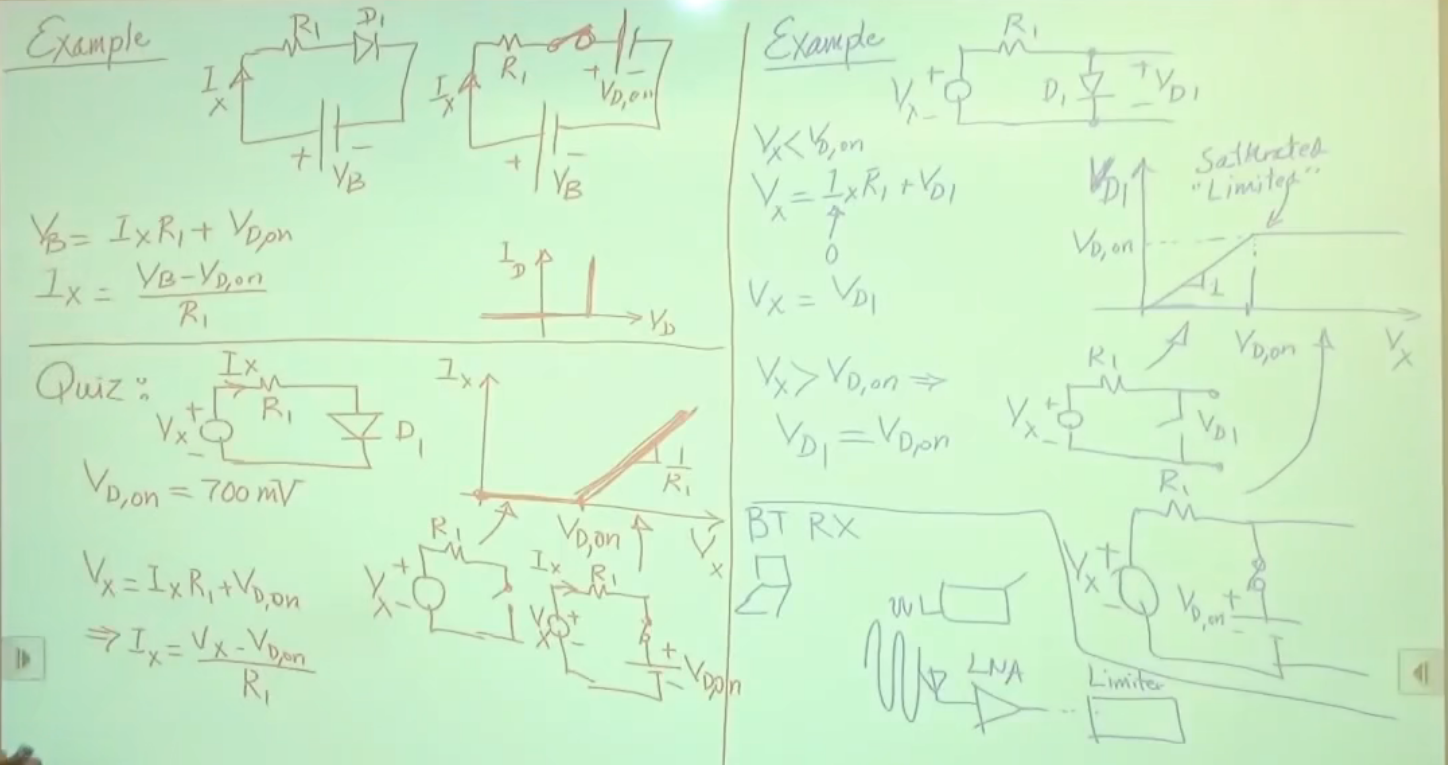 Example
R₁ D₁
I_X
+ − V_B
R₁ + − V_D,on
I_X
+ − V_B
V_B = I_X R₁ + V_D,on
I_X = (V_B − V_D,on) / R₁
I_D
V_D
Quiz:
I_X
R₁
V_X + −
D₁
V_D,on = 700 mV
V_X = I_X R₁ + V_D,on
⇒ I_X = (V_X − V_D,on) / R₁
I_X
1/R₁
V_D,on
V_X
R₁
V_X + −
I_X R₁
V_X + −
+ − V_D,on
Example
R₁
V_X + −
D₁
+ − V_D1
V_X < V_D,on
V_X = I_X R₁ + V_D1
0
V_X = V_D1
V_X > V_D,on ⇒
V_D1 = V_D,on
Saturated
"Limited"
V_D1
V_D,on
1
V_D,on
V_X
R₁
V_X + −
V_D1
R₁
V_X + −
V_D,on + −
BT RX
LNA
Limiter